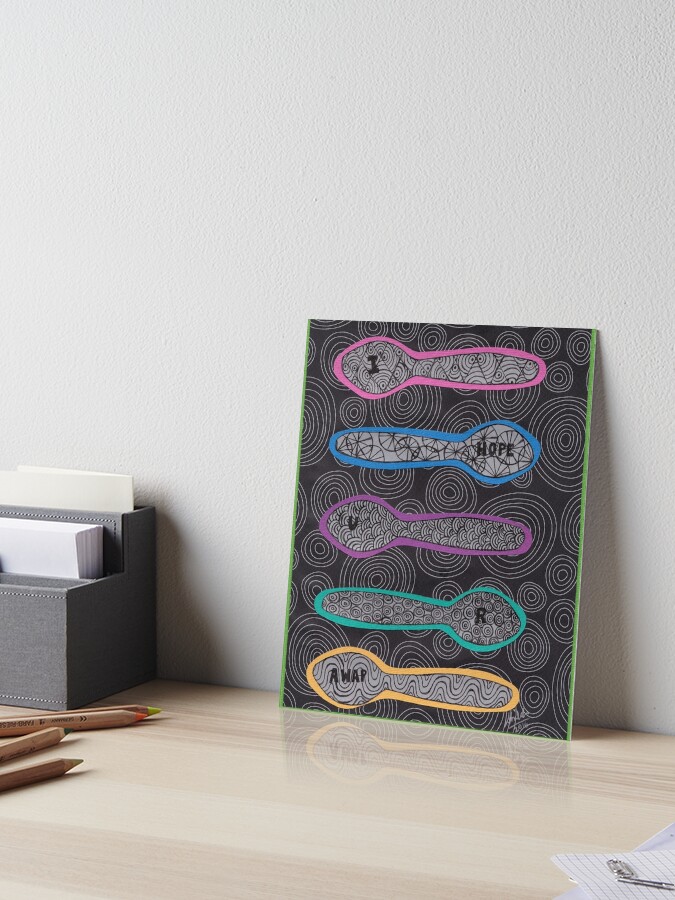 I
HOPE
U
R
AWAP